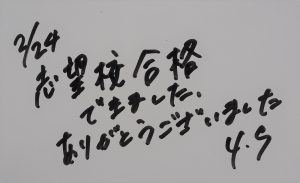 2/24
志望校合格
できました。
ありがとうございました
Y.S